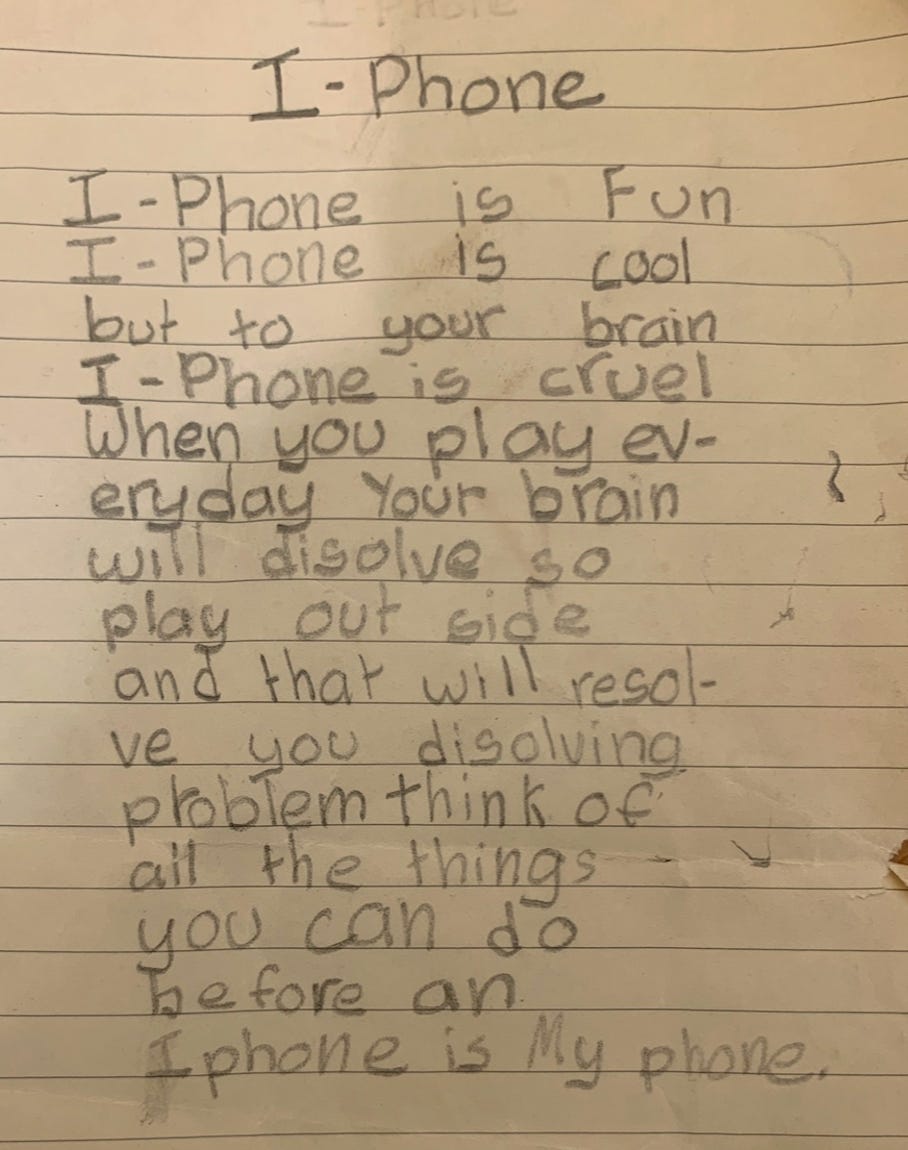 I-Phone
I-Phone is Fun
I-Phone is cool
but to your brain
I-Phone is cruel
When you play ev-
eryday Your brain
will disolve so
play out side
and that will resol-
ve you disolving
problem think of
all the things
you can do
before an
Iphone is My phone.